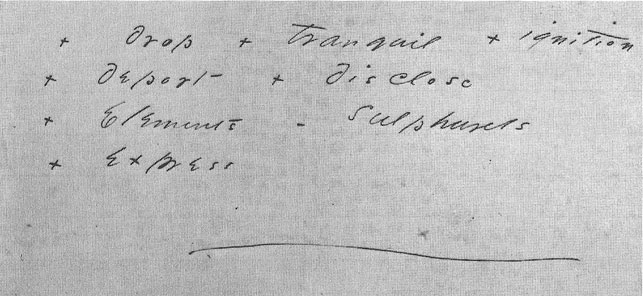 + Drop + Tranquil + ignition
+ Deport + Disclose
+ Elements - Sulphurets
+ Express